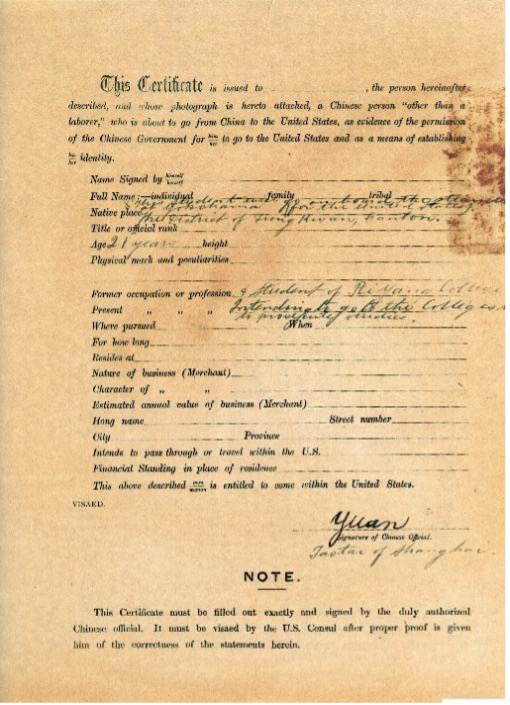 This Certificate is issued to , the person hereinafter
described, and whose photograph is hereto attached, a Chinese person "other than a
laborer," who is about to go from China to the United States, as evidence of the permission
of the Chinese Government for him her to go to the United States and as a means of establishing
his her identity.
Name Signed by himself herself
Full Name: individual family tribal
Native place the District of Canton.
Title or official rank
Age 21 years height
Physical mark and peculiarities
Former occupation or profession a Student of College
Present " " " Intending to go to the Colleges
Where pursued When
For how long
Resides at
Nature of business (Merchant)
Character of " "
Estimated annual value of business (Merchant)
Hong name Street number
City Province
Intends to pass through or travel within the U.S.
Financial Standing in place of residence
This above described is entitled to come within the United States.
VISAED.
Yuan
Signature of Chinese Official.
Taotai of Shanghai.
NOTE.
This Certificate must be filled out exactly and signed by the duly authorized
Chinese official. It must be visaed by the U.S. Consul after proper proof is given
him of the correctness of the statements herein.